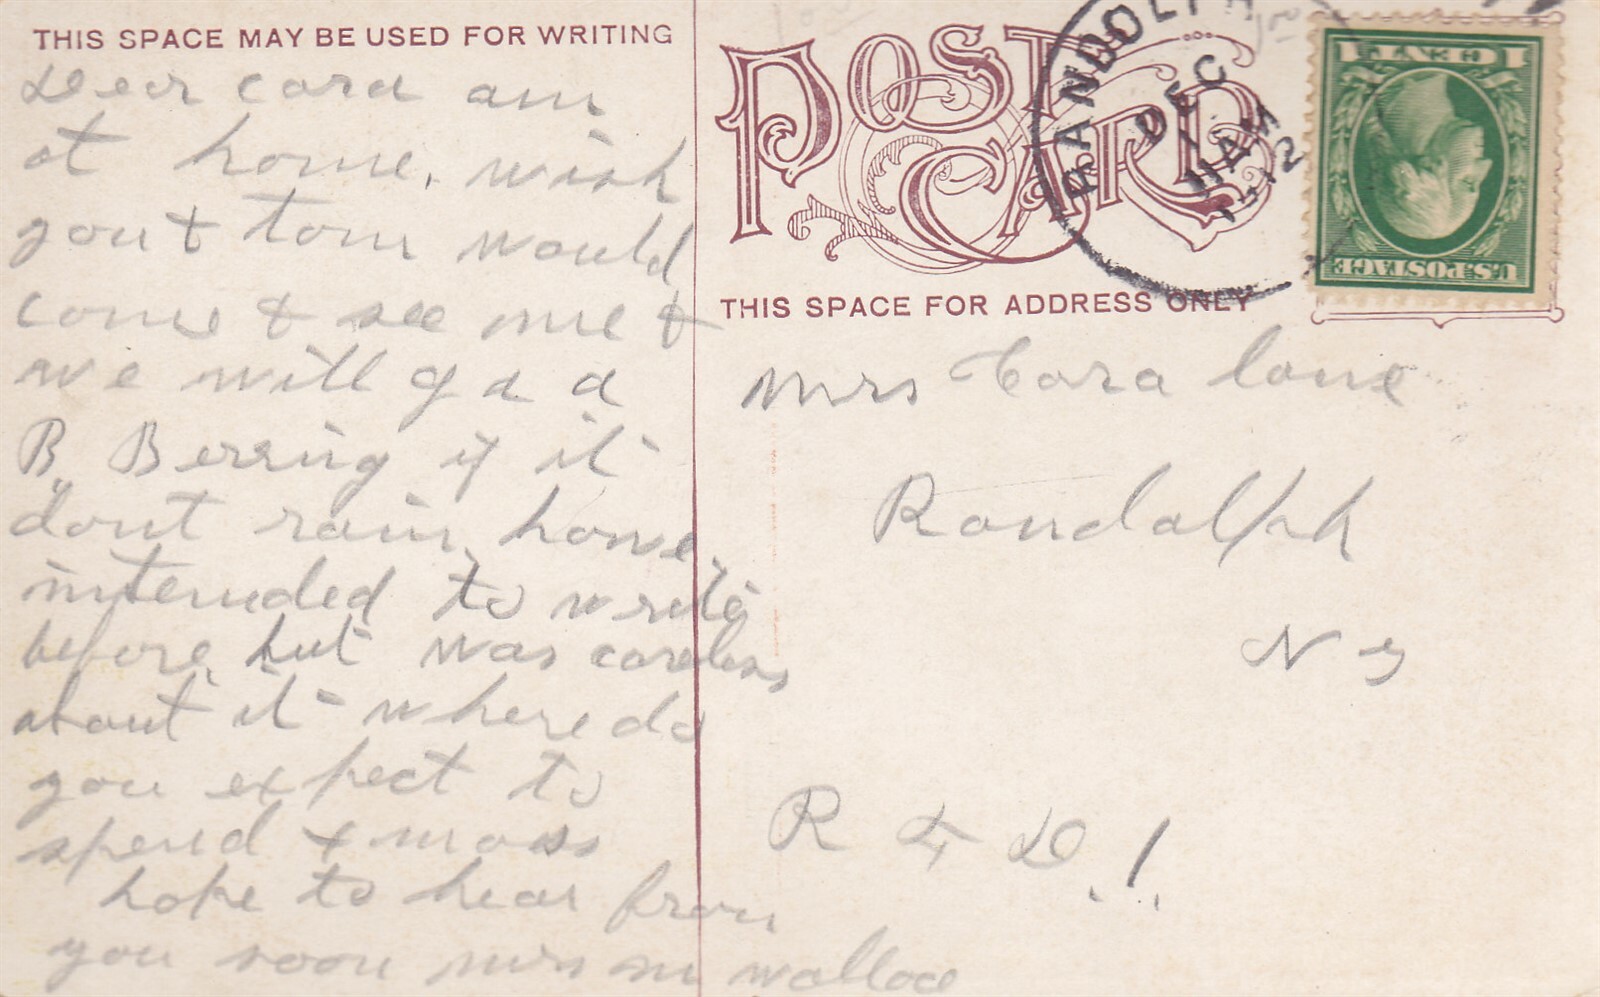 THIS SPACE MAY BE USED FOR WRITING
Dear cora am
at home. wish
you & tom would
come & see me &
we will go a
B. Berring if it
dont rain, have
intended to write
before, but was careless
about it where do
you expect to
spend xmass
hope to hear from
you soon mrs m wallace
POST CARD
RANDOLPH
DEC
11 AM
1912
1 CENT 1
U.S. POSTAGE
THIS SPACE FOR ADDRESS ONLY
Mrs Cora lane
Randolph
N y
R F D. 1.